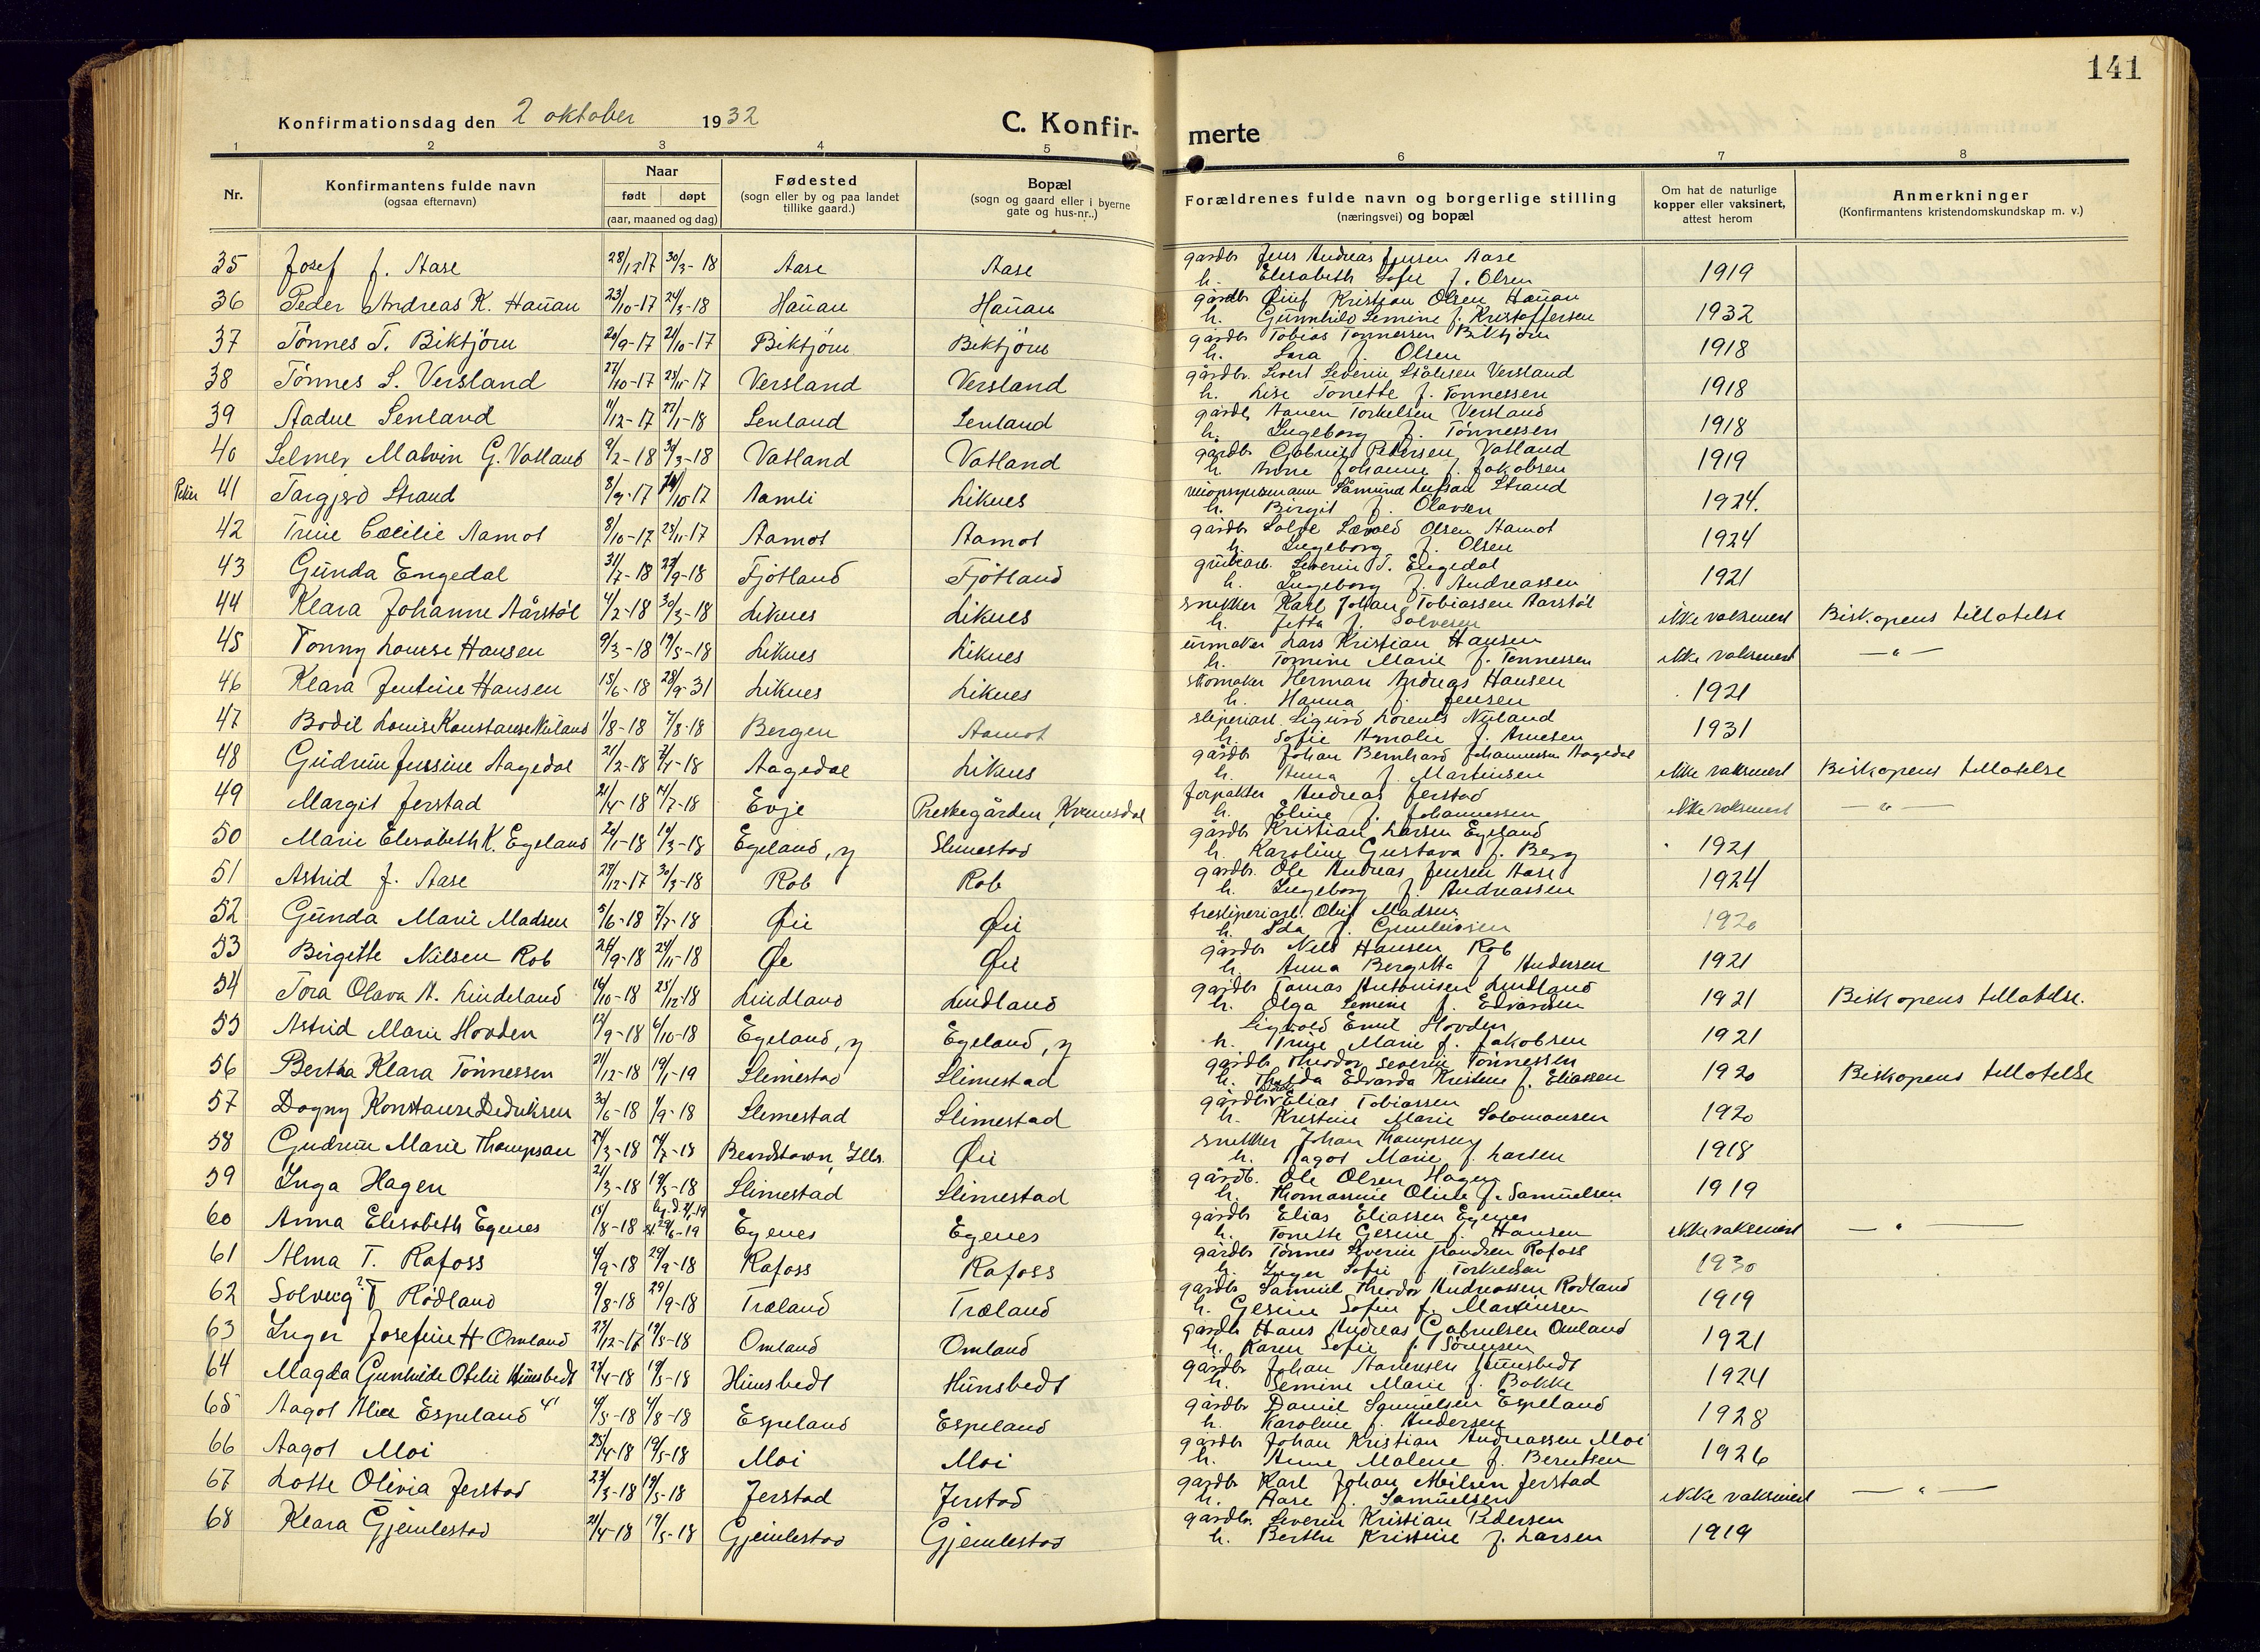 141
Konfirmationsdag den 2 oktober 1932
C. Konfir-merte
1 2 3 4 5 6 7 8
Nr. Konfirmantens fulde navn (ogsaa efternavn) Naar født døpt (aar, maaned og dag) Fødested (sogn eller by og paa landet tillike gaard.) Bopæl (sogn og gaard eller i byerne gate og hus-nr..) Forældrenes fulde navn og borgerlige stilling (næringsvei) og bopæl Om hat de naturlige kopper eller vaksinert, attest herom Anmerkninger (Konfirmantens kristendomskundskap m. v.)
35 Josef J. Aase 28/12 17 30/3-18 Aase Aase gårdbr Jens Andreas Jensen Aase
h. Elisabeth Sofie f. Olsen 1919
36 Peder Andreas K. Hauan 23/10-17 24/3-18 Hauan Hauan gårdbr Kristian Olsen Hauan
h. Gunnhild Semine f. Kristoffersen 1932
37 Tønnes T. Biktjørn 20/9-17 21/10-17 Biktjørn Biktjørn gårdbr Tobias Tønnessen Biktjørn
h. Sara f. Olsen 1918
38 Tønnes S. Versland 27/10-17 25/11-17 Versland Versland gårdbr. Sivert Severin Versland
h. Lise Tonette f. Tønnessen 1918
39 Aadne Senland 11/12-17 27/1-18 Senland Senland gårdb. Aanen Torkelsen Versland
h. Ingeborg f. Tønnessen 1918
40 Selmer Malvin G. Vatland 9/2-18 30/3-18 Vatland Vatland gårdbr Gabriel Pedersen Vatland
h. Anne Johanne f. Jakobsen 1919
41 Targjerd Strand 8/9-17 10-17 Aamli Liknes Såmund Strand
h. Birgit f. Olavsen 1924.
42 Trine Cæcilie Aamot 8/10-17 25/11-17 Aamot Aamot gårdbr Salve Olsen Aamot
h. Ingeborg f. Olsen 1924
43 Gunda Engedal 31/7-18 29/9-18 Fjotland Fjotland Severin T. Engedal
h. Ingeborg f. Andreassen 1921
44 Klara Johanne Aårstøl 4/2-18 30/3-18 Liknes Liknes snekker Karl Johan Tobiassen Aarstøl
h. Jetta f. Salvesen ikke vaksinert Biskopens tillatelse
45 Tonny Louise Hansen 9/3-18 19/5-18 Liknes Liknes urmaker Lars Kristian Hansen
h. Tomine Marie f. Tønnessen ikke vaksinert — " —
46 Klara Jentine Hansen 15/6-18 28/9-31 Liknes Liknes skomaker Herman Andreas Hansen
h. Hanna f. Jensen 1921
47 Bodil Louise Konstanse Nuland 1/8-18 7/8-18 Bergen Aamot sliperiarb. Sigurd Lorents Nuland
h. Sofie Amalie f. Arnesen 1931
48 Gudrun Jensine Aagedal 21/2-18 7/4-18 Aagedal Liknes gårdbr Johan Bernhard Johannessen Aagedal
h. Anna f. Martinsen ikke vaksinert Biskopens tillatelse
49 Margit Jerstad 21/4-18 14/7-18 Evje Prestegården, Kvinesdal forpakter Andreas Jerstad
h. Eline f. Johannessen ikke vaksinert — " —
50 Marie Elisabeth K. Egeland 20/1-18 19/3-18 Egeland, y Slimestad gårdbr Kristian Larsen Egeland
h. Karoline Gustava f. Berg 1921
51 Astrid J. Aase 29/12-17 30/3-18 Rob Rob gårdbr. Ole Andreas Jensen Aase
h. Ingeborg f. Andreassen 1924
52 Gunda Marie Madsen 5/6-18 7/7-18 Øie Øie tresliperiarb. Oluf Madsen
h. Ida f. 1920
53 Birgitte Nilsen Rob 21/9-18 24/11-18 Øe Øie gårdbr Nils Hansen Rob
h. Anna Bergitta f Andersen 1921
54 Tora Olava A. Lindeland 14/10-18 25/12-18 Lindland Lindland gårdbr Tomas Antonisen Lindland
h. Olga Semine f. Edvardsen 1921 Biskopens tillatelse.
55 Astrid Marie Hovden 12/9-18 6/10-18 Egeland, y Egeland, y Sigvald Emil Hovden
h. Trine Marie f. Jakobsen 1921
56 Bertha Klara Tønnessen 21/12-18 19/1-19 Slimestad Slimestad gårdbr Theodor Severin Tønnessen
h. Edvarda Kristine f. Eliassen 1920 Biskopens tillatelse
57 Dagny Konstanse Didriksen 30/6-18 1/9-18 Slimestad Slimestad gårdbr Elias Tobiassen
h. Kristine Marie Salomonsen 1920
58 Gudrun Marie Thompson 24/3-18 14/7-18 Beardstown, Ills. Øie snekker Johan Thompson
h. Aagot Marie f. Larsen 1918
59 Inga Hagen 21/3-18 19/5-18 Slimestad Slimestad gårdb. Ole Olsen Hagen
h. Thomassine Oline f. Samuelsen 1919
60 Anna Elisabeth Egenes 15/8-18 29/6-19 Egenes Egenes gårdbr Elias Eliassen Egenes
h. Tonette Gesine f. Hansen ikke vaksinert — " —
61 Alma T. Rafoss 4/9-18 29/9-18 Rafoss Rafoss gårdbr Tønnes Severin Rafoss
h. Inger Sofie f. Torkildsen 1930
62 Solveig ? T Rødland 9/8-18 29/9-18 Træland Træland gårdbr Samuel Theodor Andreassen Rødland
h. Gesine Sofie f. Martinsen 1919
63 Inger Josefine H Omland 27/12-17 19/5-18 Omland Omland gårdbr Hans Andreas Gabrielsen Omland
h. Karen Sofie f. Sørensen 1921
64 Magda Gunhilde Otelie Hunsbedt 23/4-18 19/5-18 Hunsbedt Hunsbedt gårdbr Johan Aanensen Hunsbedt
h. Semine Marie f. Bakke 1924
65 Aagot Alice Espeland 4/5-18 4/8-18 Espeland Espeland gårdbr Daniel Samuelsen Espeland
h. Karoline f. Andersen 1928
66 Aagot Moi 25/4-18 19/5-18 Moi Moi gårdbr Johan Kristian Andreassen Moi
h. Anne Malene f. Berntsen 1926
67 Lotte Olivia Jerstad 23/3-18 19/5-18 Jerstad Jerstad gårdbr Karl Johan Jerstad
h. Aase f. Samuelsen ikke vaksinert — " —
68 Klara Gjemlestad 21/4-18 19/5-18 Gjemlestad Gjemlestad gårdbr. Severin Kristian Pedersen
h. Berthe Kristine f. Larsen 1919